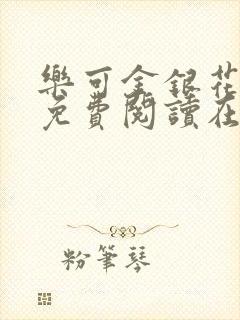 樂可金銀花
免費閱讀在
粉筆琴